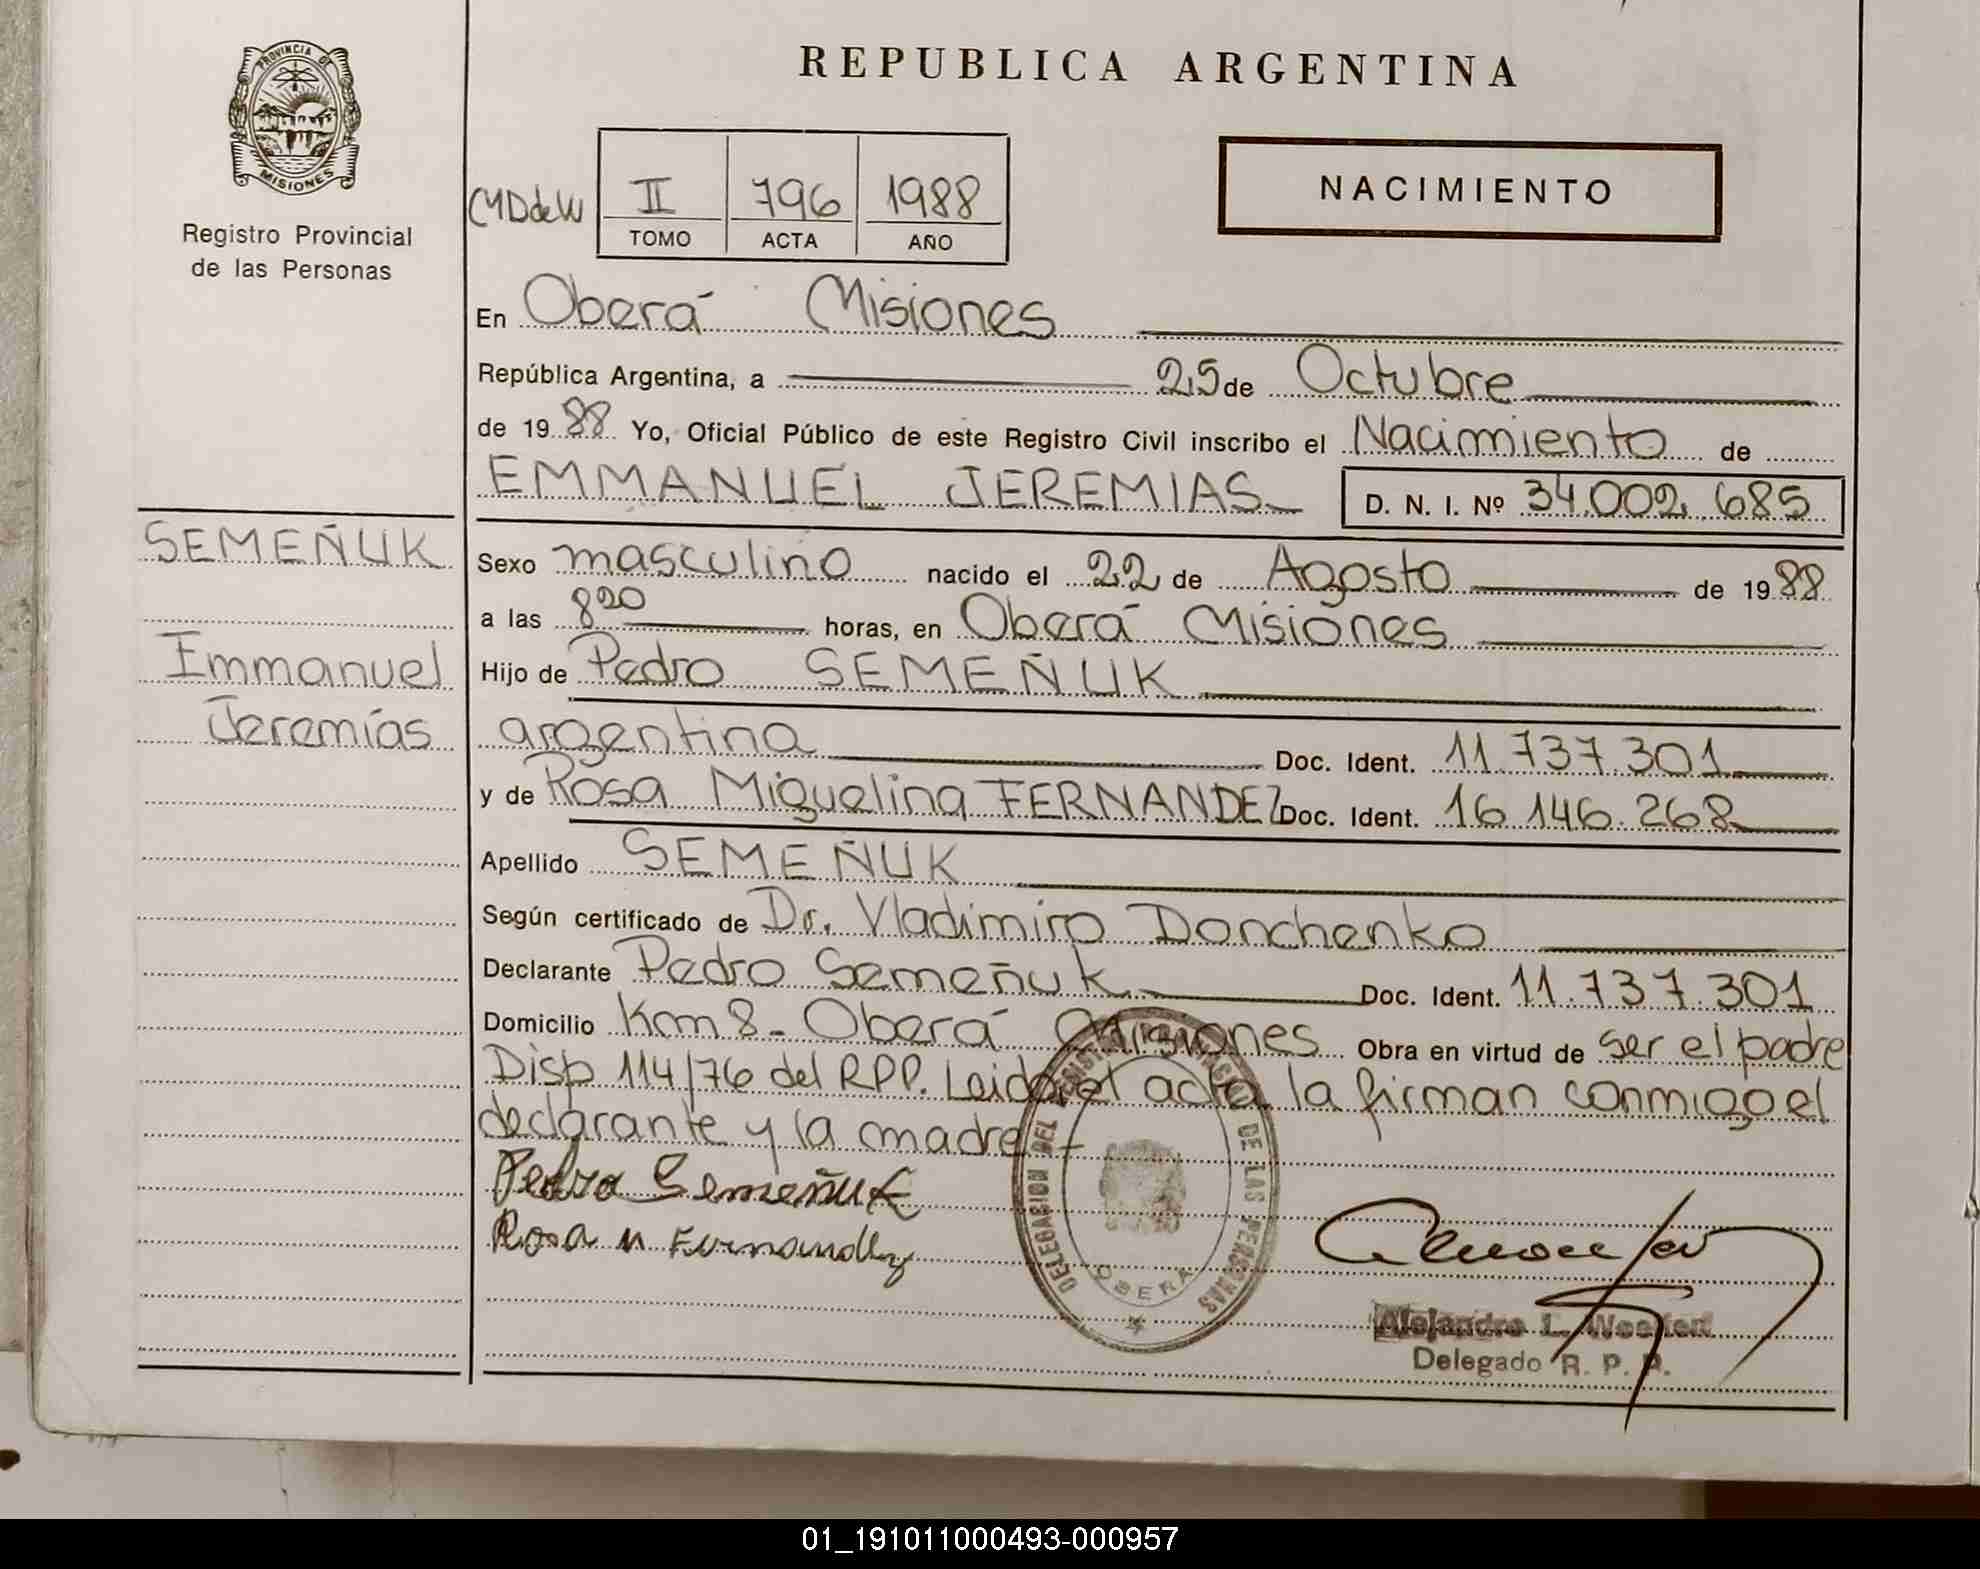 PROVINCIA DE
MISIONES
Registro Provincial
de las Personas
SEMEÑUK
Emmanuel
Jeremías
REPUBLICA ARGENTINA
II 796 1988
TOMO ACTA AÑO
NACIMIENTO
En Oberá Misiones
República Argentina, a 25 de Octubre
de 1988 Yo, Oficial Público de este Registro Civil inscribo el Nacimiento de
EMMANUEL JEREMIAS D. N. I. Nº 34.002.685
Sexo masculino nacido el 22 de Agosto de 1988
a las 8 20 horas, en Oberá Misiones
Hijo de Pedro SEMEÑUK
argentina Doc. Ident. 11.737.301
y de Rosa Miguelina FERNANDEZ Doc. Ident. 16.146.268
Apellido SEMEÑUK
Según certificado de Dr. Vladimiro Donchenko
Declarante Pedro Semeñuk Doc. Ident. 11.737.301
Domicilio Km 8 - Oberá Misiones Obra en virtud de ser el padre
Disp 114/76 del RPP. Leida el acta la firman conmigo el
declarante y la madre -
Pedro Semeñuk
Rosa M Fernandez
DELEGACION DEL REGISTRO PROVINCIAL DE LAS PERSONAS
OBERA
Alejandro L.
Delegado R. P. P.
01_191011000493-000957